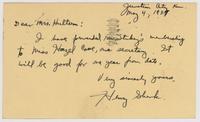 Junction City, Kan.
May 4, 1937
Dear Mrs. Hultsen:
I have forwarded Mrs. membership
to Miss Hazel Cave, our secretary. It
will be good for one year from date.
Very sincerely yours,
Henry